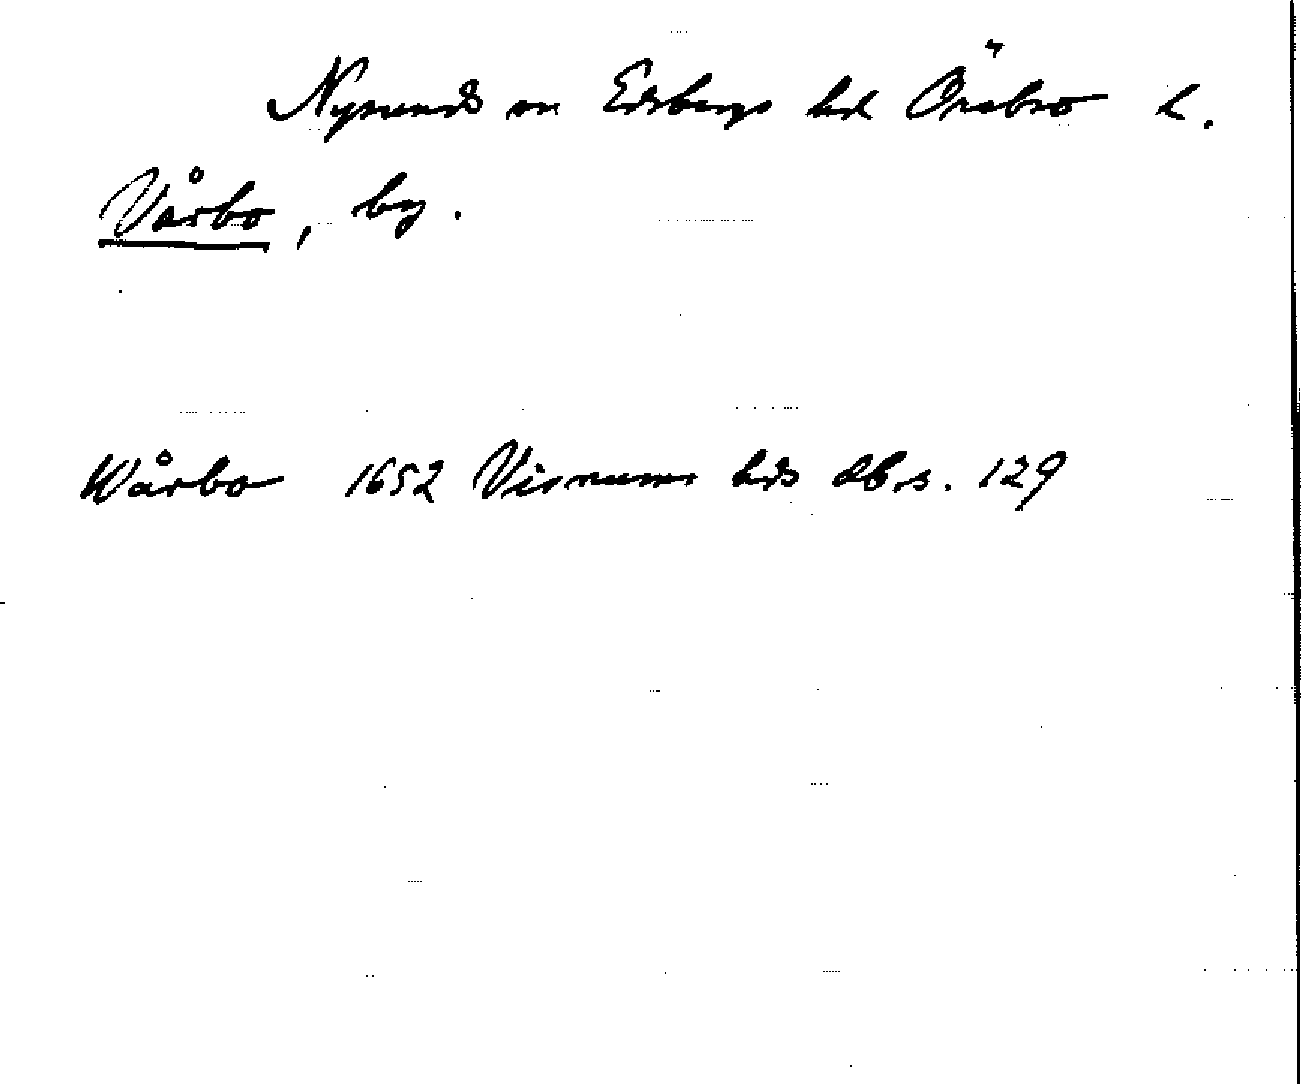 Nysunds sn Edsbergs hd Örebro l.
Vårbo, by.
Wårbo 1652 Visnums hds db. s. 129